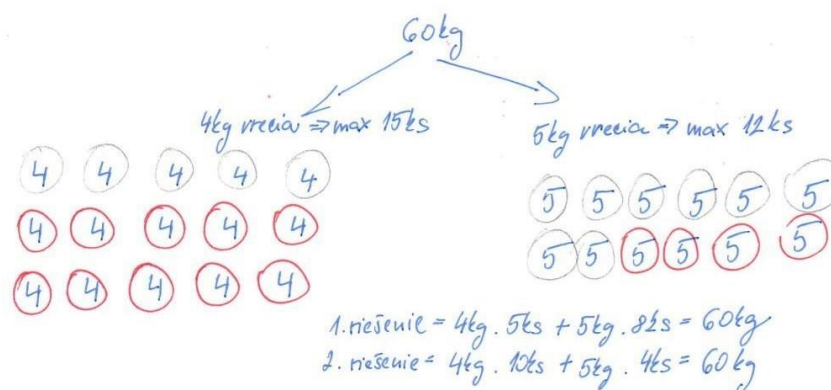 60kg
4kg vrecia => max 15ks
5kg vrecia => max 12ks
4 4 4 4 4
4 4 4 4 4
4 4 4 4 4
5 5 5 5 5 5
5 5 5 5 5 5
1. riešenie = 4kg . 5ks + 5kg . 8ks = 60kg
2. riešenie = 4kg . 10ks + 5kg . 4ks = 60kg